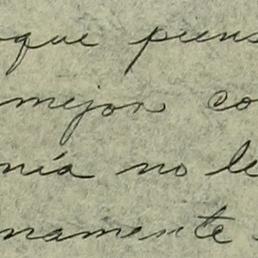 oque piens
mejor co
nía no le
namente